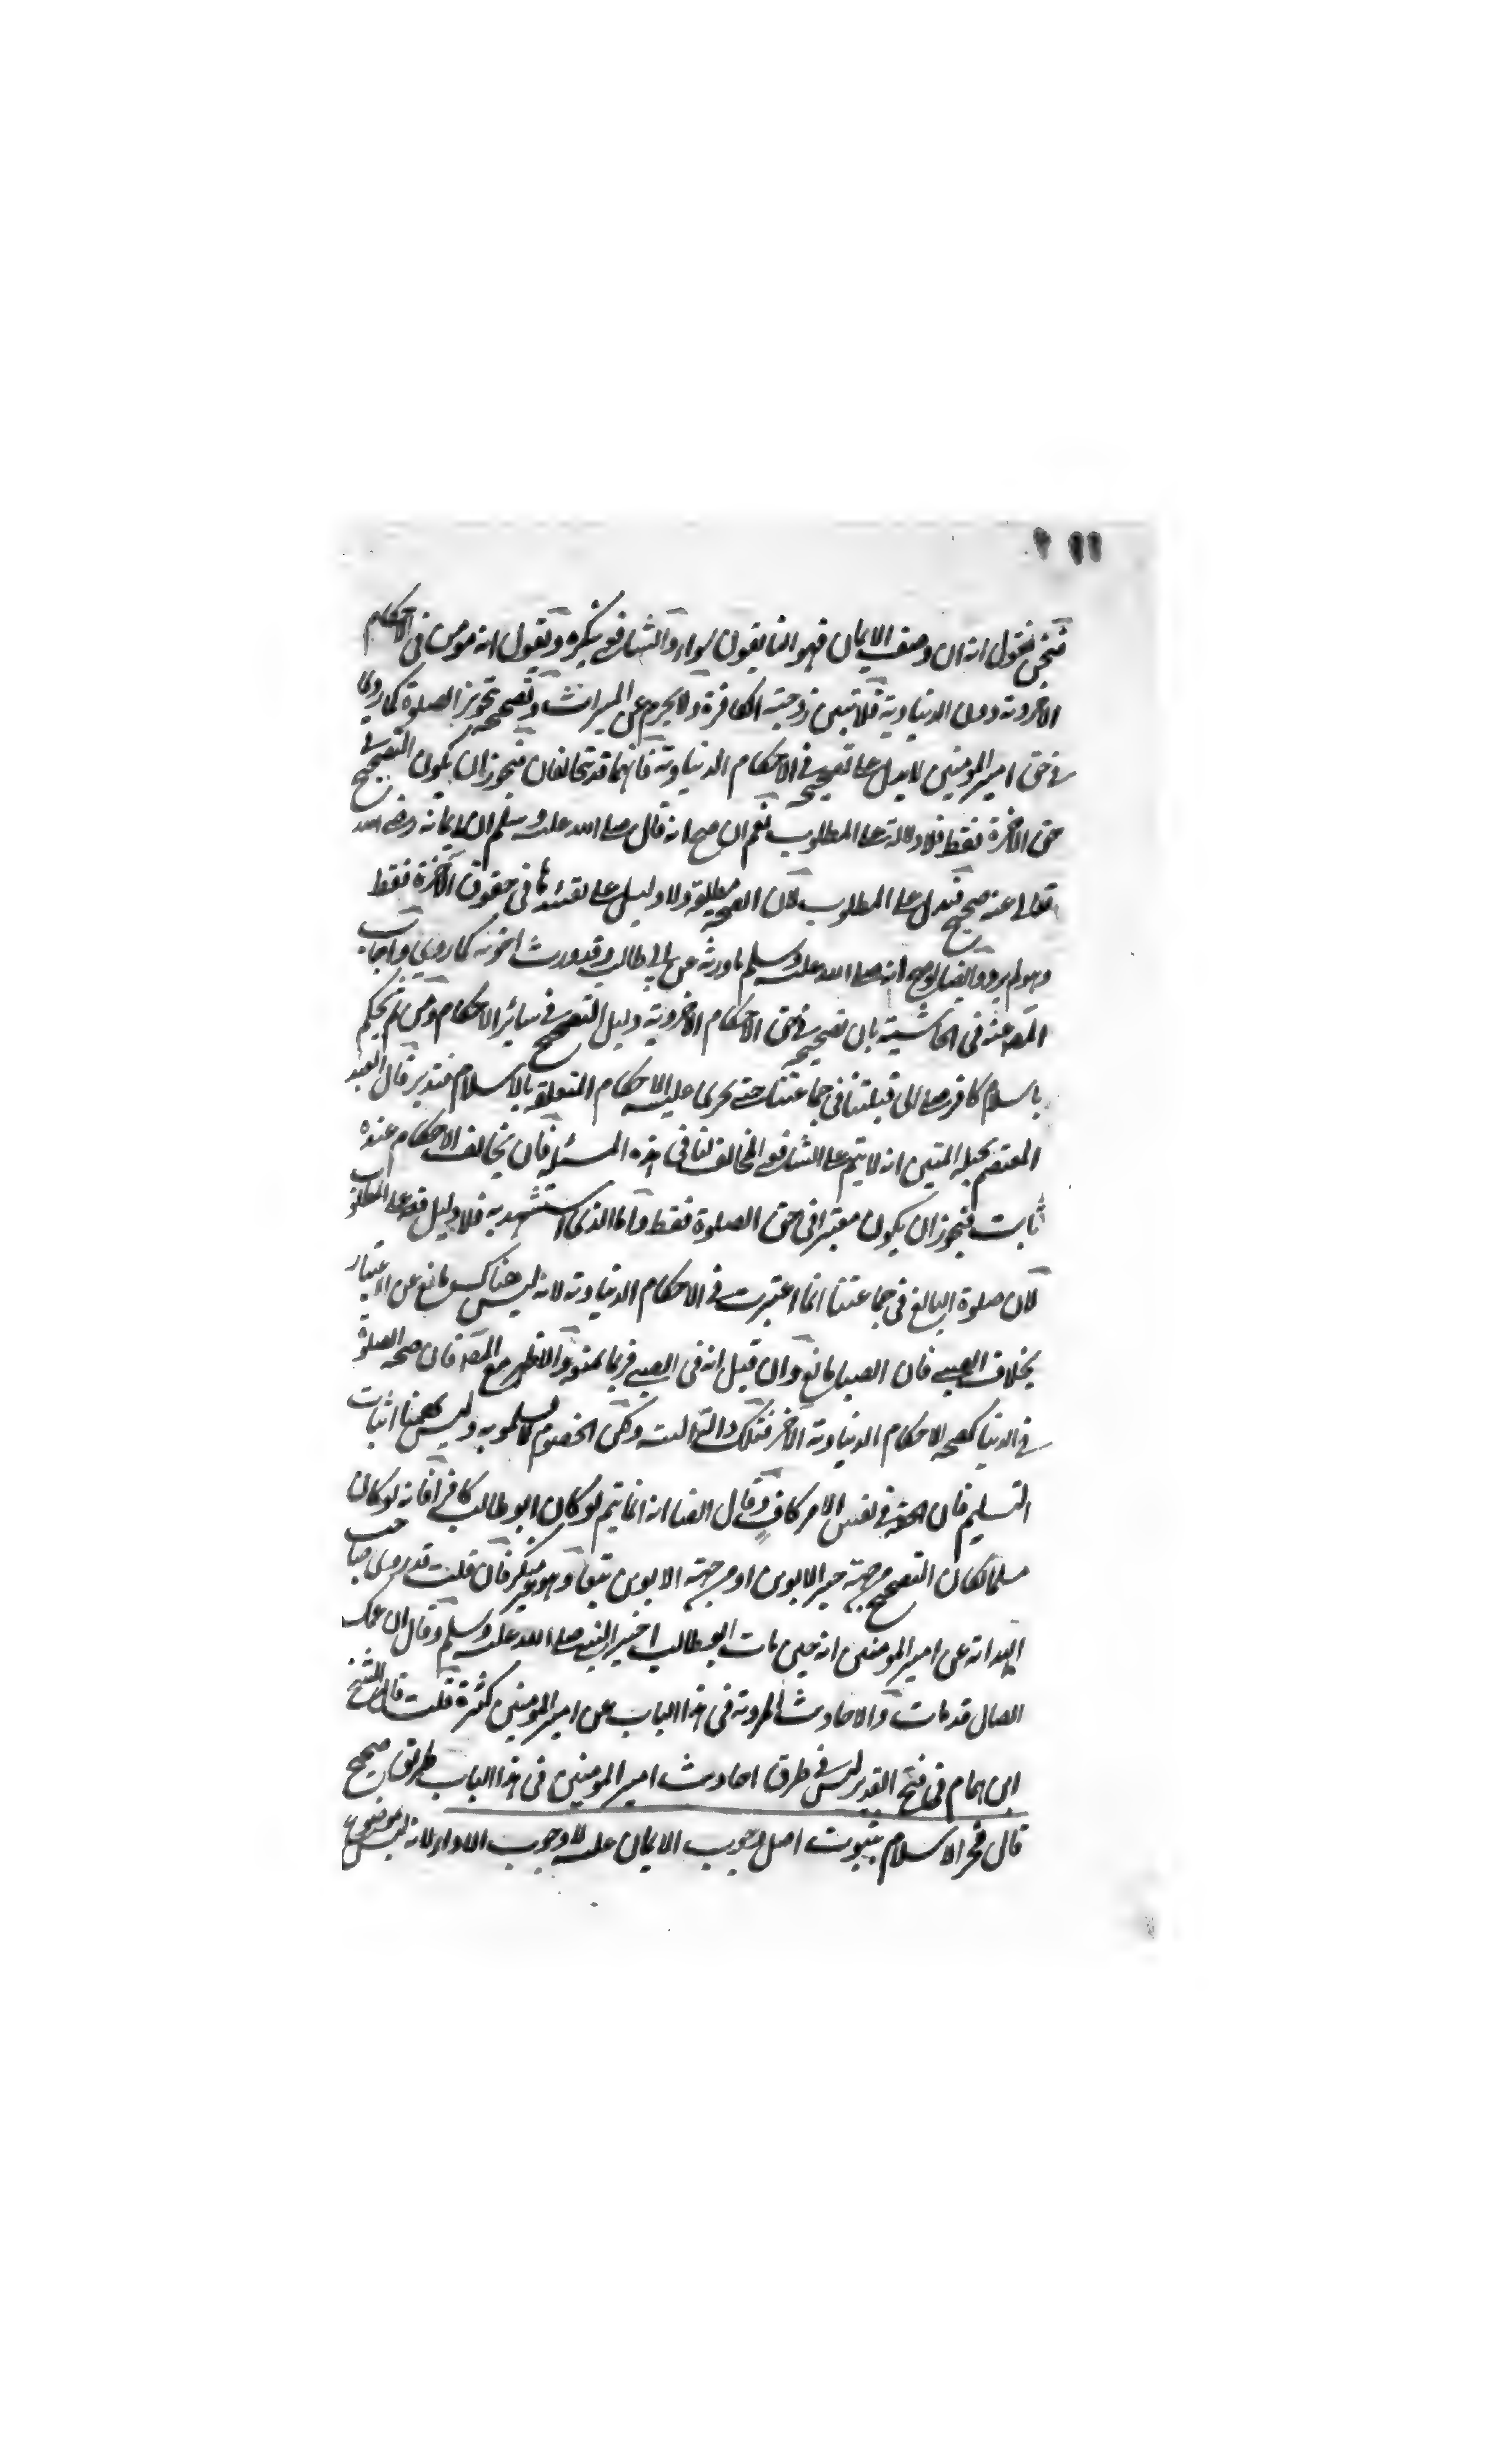 فنحن نقول انه ان وصف الايمان فهو السابقون سواء والشافعي ينكره ويقول انه مومن في الاحكام
الاخروية دون الدنياوية فلا تبين زوجته الكافرة ولا يحرم عن الميراث وتصحيحه تجويز الصلوة كما روى
في حق امير المومنين لا يدل على تصحيحه في الاحكام الدنياوية فانهما قد تخالفان فيجوز ان يكون التصحيح في
حق الاخرة فقط فلا دلالة على المطلوب نعم ان صح انه قال صلى الله عليه وسلم ان ايمانه رضي الله
تعالى عنه صحيح فيدل على المطلوب لان الصحة مطلقة ولا دليل على تقييدها في حقوق الاخرة فقط
وهو لم يرو وايضا لو صح انه صلى الله عليه وسلم ما ورثه عن ابي طالب وقد ورث اخوته كما روى واجاب
المصـ عنه في الحاشية بان تصحيحه في حق الاحكام الاخروية دليل التصحيح في سائر الاحكام ومن ثم يحكم
باسلام كافر صلى الى قبلتنا في جماعتنا حتى يجرى عليه الاحكام المتعلقة بالاسلام فتدبر قال العبد
المعتصم بحبله المتين انه لا يتم على الشافعي المخالف لنا في هذه المسئلة فان تخالف الاحكام عنده
ثابت فيجوز ان يكون معتبرا في حق الصلوة فقط واما الذي استشهد به فلا دليل فيه على المطلوب
لان صلوة البالغ في جماعتنا انما اعتبرت في الاحكام الدنياوية لانه ليس هناك مانع عن الاعتبار
بخلاف الصبي فان الصبا مانع وان قيل انه في الصبي فربما يمنع والاظهر مع المصـ فان صحة الصلوة
في الدنيا كصحة الاحكام الدنياوية الاخر فتلك دالة البتة ولكن الخصوم لا يسلمونه وليس ههنا اثبات
التسليم فان الحقية في نفس الامر كاف وقال ايضا انه انما يتم لو كان ابو طالب كافرا فانه لو كان
مسلما لكان التصحيح من جهة خير الابوين او من جهة الابوين تبعا وهو غير منكر فان قلت قد روى صاحب
الهداية عن امير المومنين انه حين مات ابو طالب اخبر النبي صلى الله عليه وسلم وقال ان عمك
الضال قد مات والاحاديث المروية في هذا الباب عن امير المومنين كثيرة قلت قال الشيخ
ابن همام في فتح القدير ليس في طرق احاديث امير المومنين في هذا الباب طريق صحيح
قال فخر الاسلام بثبوت اصل وجوب الايمان عليه لا وجوب الاداء لانه ليس موضوع